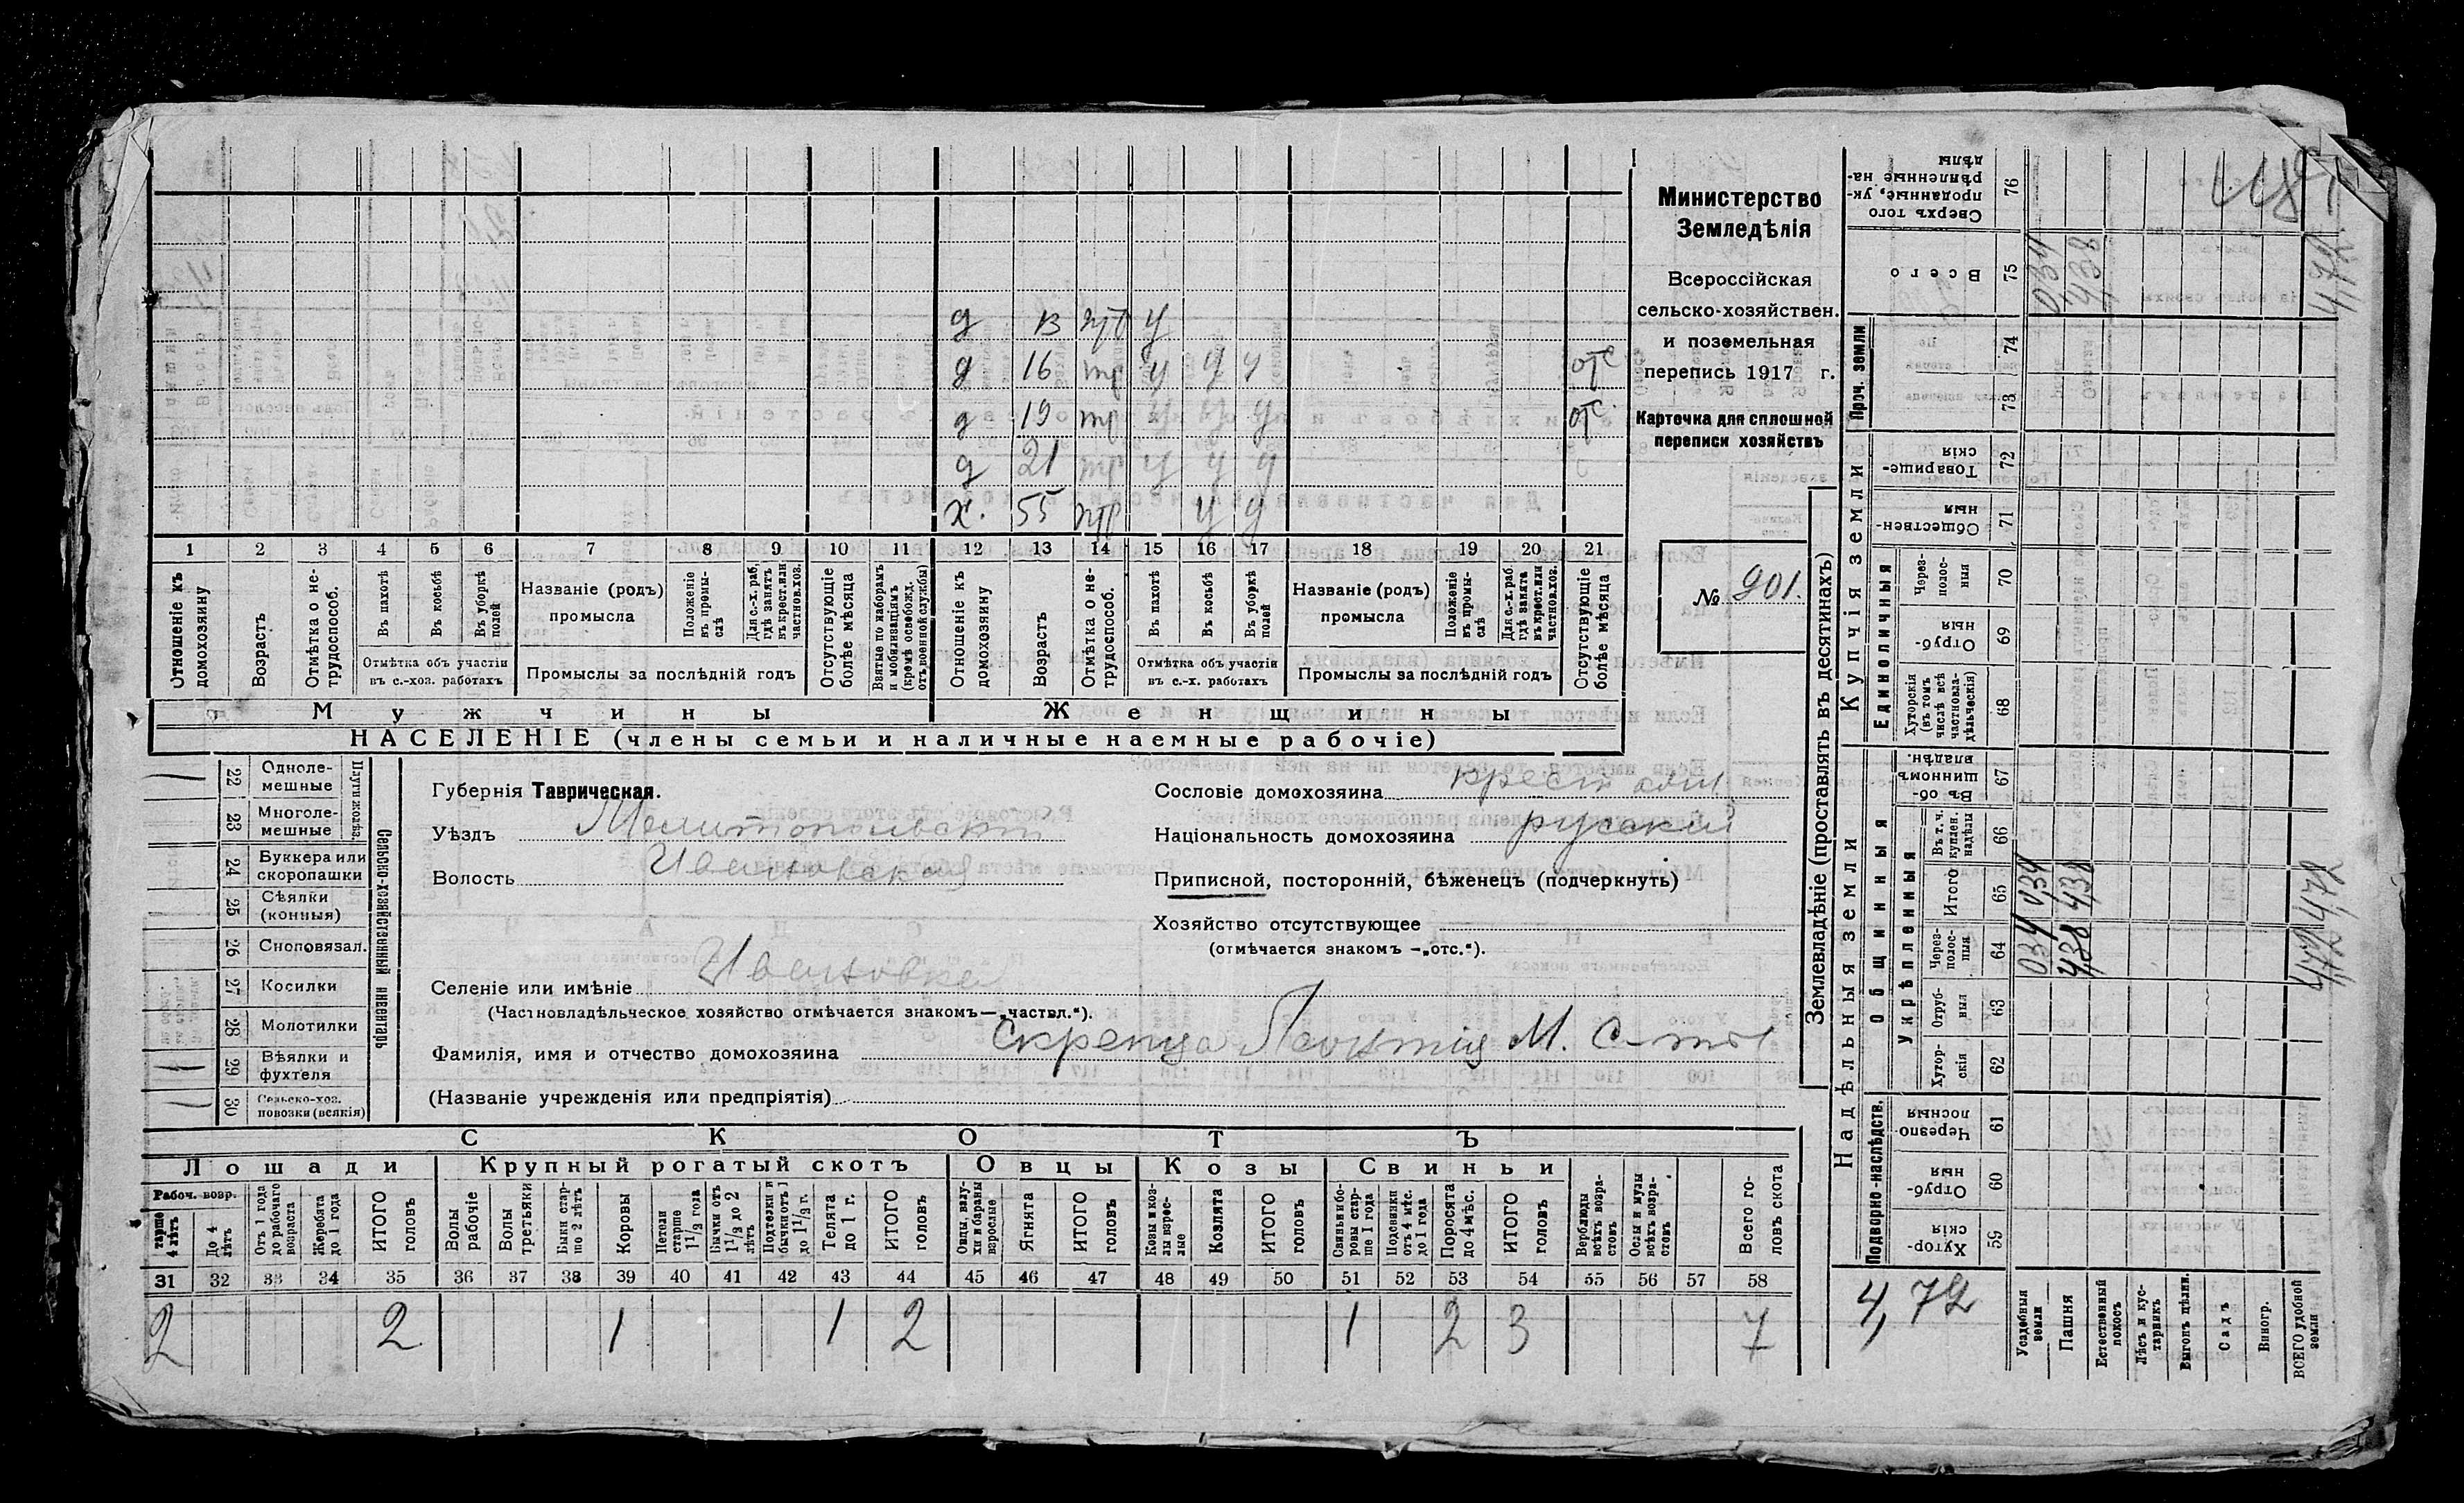 д 13 нтр у
д 16 тр у у у отс
д 19 тр у у у отс.
д 21 тр у у у
х. 55 нтр у у
1 2 3 4 5 6 7 8 9 10 11 12 13 14 15 16 17 18 19 20 21
Отношеніе къ домохозяину
Возрастъ
Отмѣтка о не-трудоспособ.
Въ пахотѣ
Въ косьбѣ
Въ уборкѣ полей
Отмѣтка объ участіи
въ с.-хоз. работахъ
Названіе (родъ)
промысла
Положеніе въ промы-слѣ
Для с.-х. раб. гдѣ занятъ въ крест. или частнов. хоз.
Промыслы за послѣдній годъ
Отсутствующіе болѣе мѣсяца
Взятые по наборамъ и мобилизаціямъ (кромѣ освобожд. отъ военной службы)
Отношеніе къ домохозяину
Возрастъ
Отмѣтка о не-трудоспособ.
Въ пахотѣ
Въ косьбѣ
Въ уборкѣ полей
Отмѣтка объ участіи
въ с.-х. работахъ
Названіе (родъ)
промысла
Положеніе въ промы-слѣ
Для с.-х. раб. гдѣ занята въ крест. или частнов. хоз.
Промыслы за послѣдній годъ
Отсутствующіе болѣе мѣсяца
Мужчины
Женщины
НАСЕЛЕНІЕ (члены семьи и наличные наемные рабочіе)
Министерство
Земледѣлія
Всероссійская
сельско-хозяйствен.
и поземельная
перепись 1917 г.
Карточка для сплошной
переписи хозяйствъ
№ 901.
Сельско-хозяйственный инвентарь
Плуги желѣз.
22 Одноле-мешные
23 Многоле-мешные
24 Буккера или скоропашки
25 Сѣялки (конныя)
26 Сноповязал.
27 Косилки
28 Молотилки
29 Вѣялки и фухтеля
30 Сельско-хоз. повозки (всякія)
Губернія Таврическая.
Уѣздъ Мелитопольскій
Волость Ивановская
Селеніе или имѣніе Ивановка
(Частновладѣльческое хозяйство отмѣчается знакомъ—„частвл.“).
Фамилія, имя и отчество домохозяина Скрепца Леонтій М.
(Названіе учрежденія или предпріятія)
Сословіе домохозяина
Національность домохозяина русскій
Приписной, посторонній, бѣженецъ (подчеркнуть)
Хозяйство отсутствующее
(отмѣчается знакомъ —„отс.“).
СКОТЪ
Лошади
Крупный рогатый скотъ
Овцы
Козы
Свиньи
Рабоч. возр.
тарше 4 лѣтъ
До 4 лѣтъ
Отъ 1 года до рабочаго возраста
Жеребята до 1 года
ИТОГО головъ
Волы рабочіе
Волы третьяки
Быки стар-ше 2 лѣтъ
Коровы
Нетели старше 1 1/2 года
Бычки отъ 1 1/2 до 2 лѣтъ
Подтелки и бычки отъ 1 до 1 1/2 г.
Телята до 1 г.
ИТОГО головъ
Овцы, валу-хи и бараны взрослые
Ягнята
ИТОГО головъ
Козы и коз-лы взрос-лые
Козлята
ИТОГО головъ
Свиньи и бо-ровы стар-ше 1 года
Подсвинки отъ 4 мѣс. до 1 года
Поросята до 4 мѣс.
ИТОГО головъ
Верблюды всѣхъ возра-стовъ
Ослы и мулы всѣхъ возра-стовъ
Всего го-ловъ скота
31 32 33 34 35 36 37 38 39 40 41 42 43 44 45 46 47 48 49 50 51 52 53 54 55 56 57 58
2 2 1 1 2 1 2 3 7
Землевладѣніе (проставлять въ десятинахъ)
Надѣльныя земли
Купчія земли
Проч. земли
Подворно-наслѣдств.
Общинныя
Укрѣпленныя
Единоличныя
Хутор-скія 59
Отруб-ныя 60
Черезпо лосныя 61
Хутор-скія 62
Отруб-ныя 63
Через-полос-ныя 64
Итого 65
Въ т. ч. куплен. надѣлы 66
Въ об-щинномъ владѣн. 67
Хуторскія (въ томъ числѣ всѣ частновла-дѣльческія) 68
Отруб-ныя 69
Через-полос-ныя 70
Обществен-ныя 71
Товарище-скія 72
73
74
Всего 75
Сверхъ того проданные, ук-рѣпленные на-дѣлы 76
Усадебныя земли 0,34 0,34 0,34
Пашня 4,38 4,38 4,38
Естественный покосъ
Лѣсъ и кус-тарникъ
Выгонъ цѣлин.
Садъ
Виногр.
ВСЕГО удобной земли 4,72 4,72 4,72
4,72